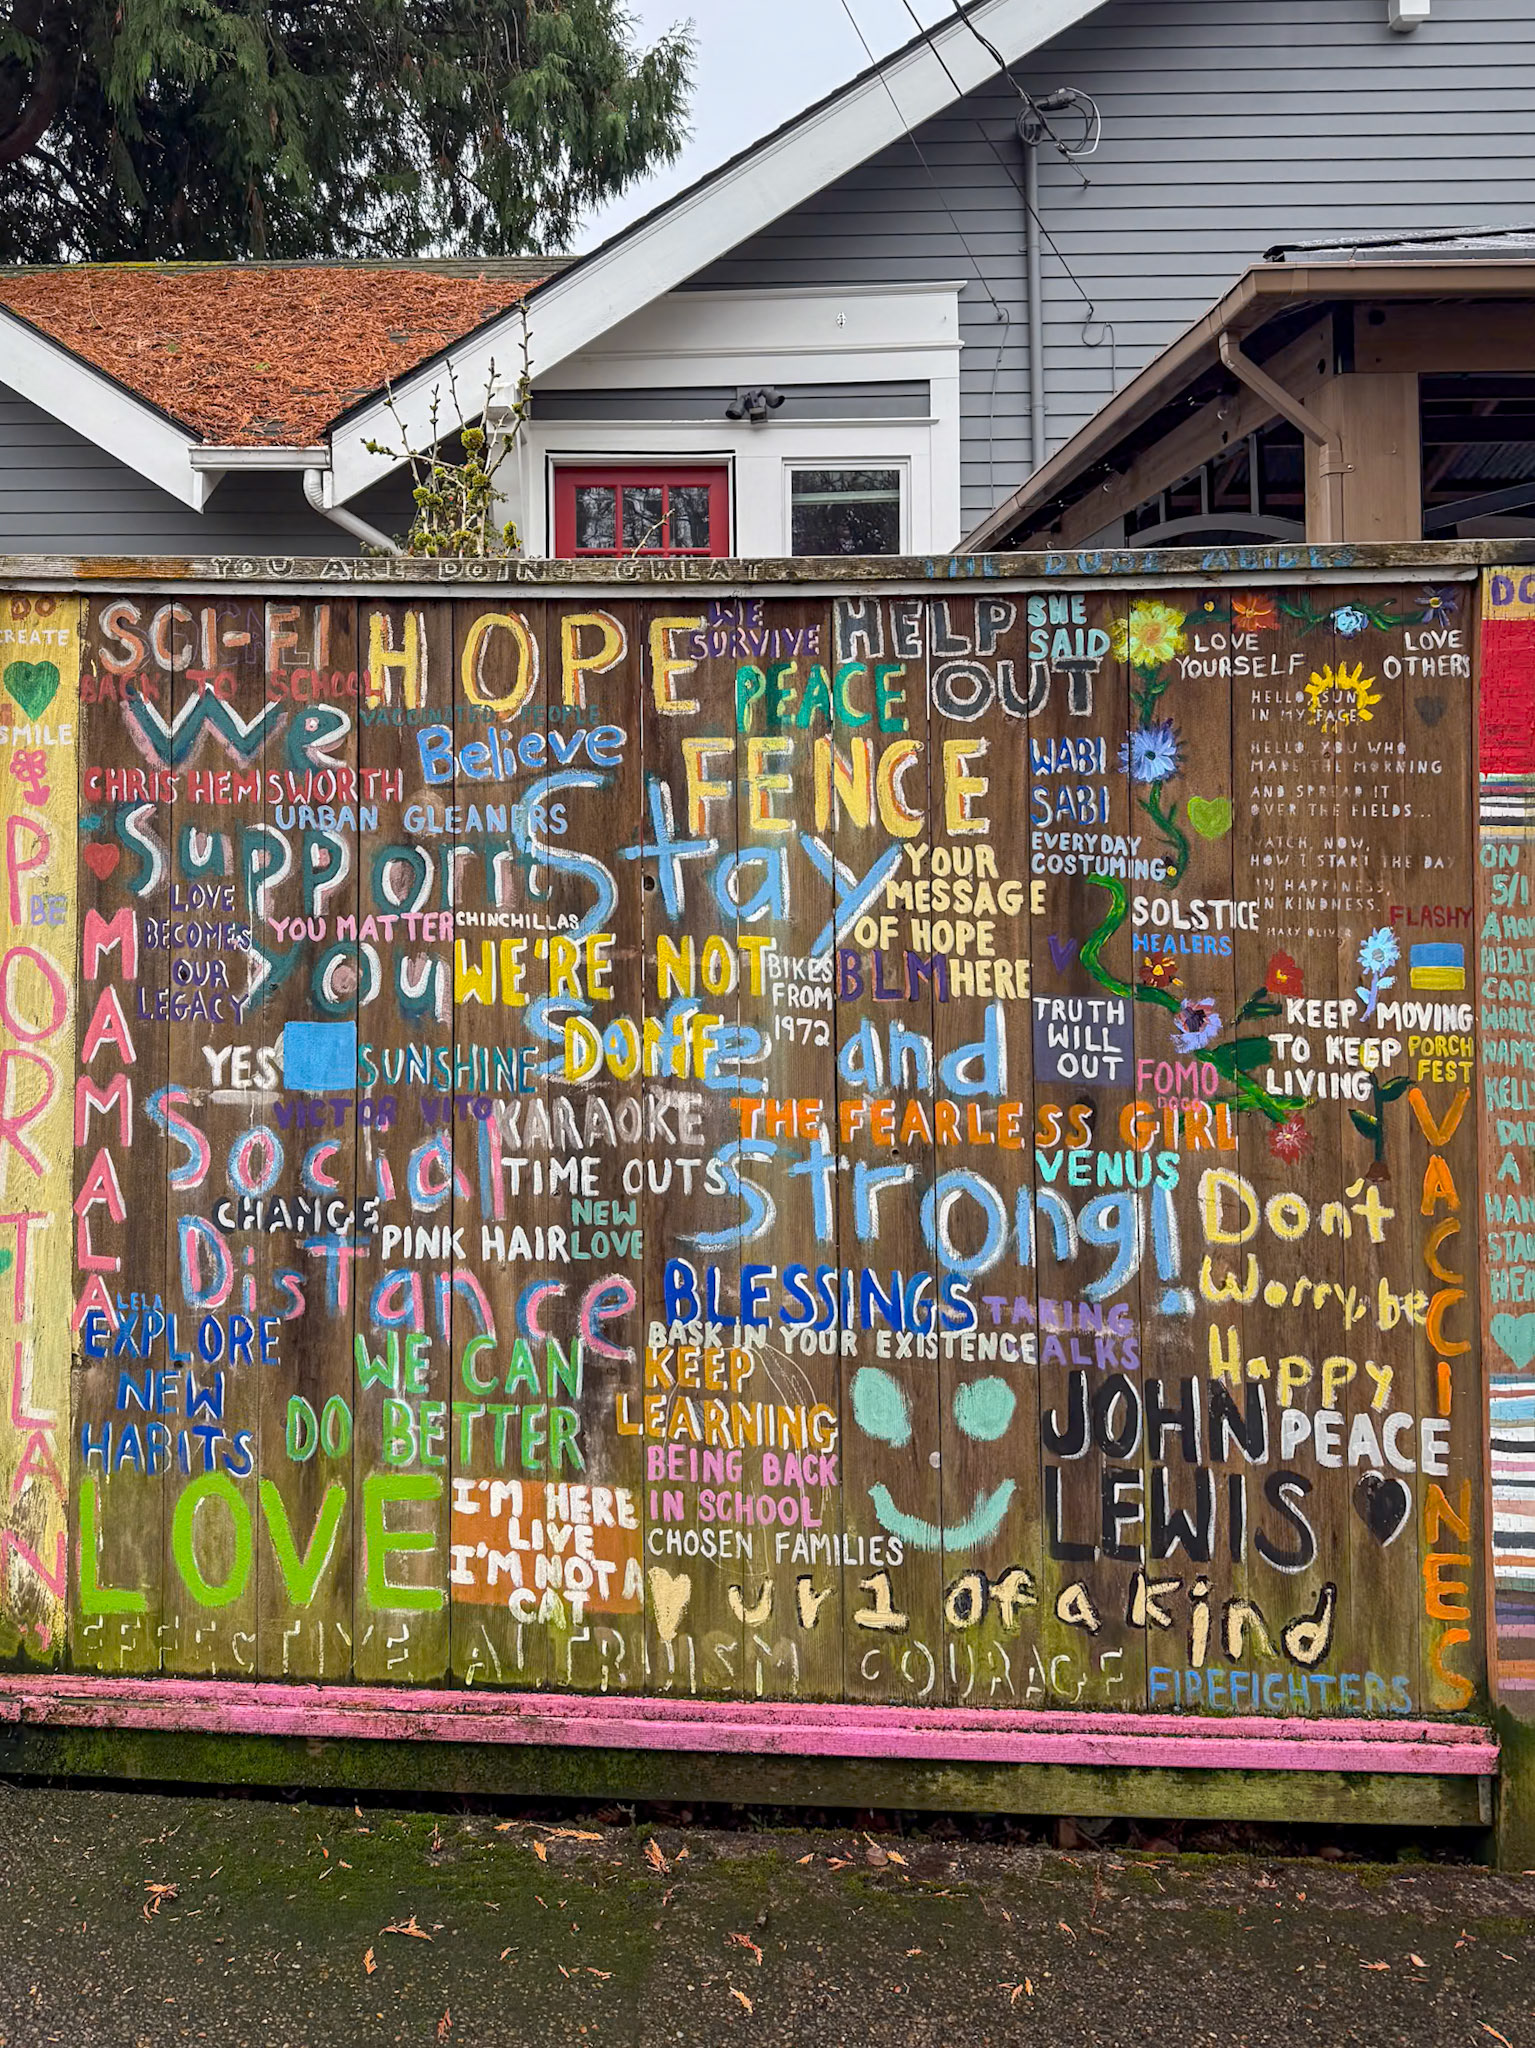 YOU ARE DOING GREAT
THE DUDE ABIDES
DO
CREATE
SMILE
BE
PORTLAND
SCI-FI
BACK TO SCHOOL
HOPE
FENCE
WE
SURVIVE
PEACE
HELP
OUT
SHE
SAID
LOVE
YOURSELF
LOVE
OTHERS
VACCINATED PEOPLE
Believe
CHRIS HEMSWORTH
URBAN GLEANERS
We
Support
you
WABI
SABI
EVERYDAY
COSTUMING
HELLO, SUN
IN MY FACE.
HELLO, YOU WHO
MAKE THE MORNING
AND SPREAD IT
OVER THE FIELDS...
WATCH, NOW,
HOW I START THE DAY
IN HAPPINESS,
IN KINDNESS.
MARY OLIVER
FLASHY
Stay
Safe and
Strong!
YOUR
MESSAGE
OF HOPE
HERE
LOVE
BECOMES
OUR
LEGACY
YOU MATTER
CHINCHILLAS
MAMALA
WE'RE NOT
DONE
BIKES
FROM
1972
BLM
SOLSTICE
HEALERS
TRUTH
WILL
OUT
KEEP MOVING
TO KEEP
LIVING
PORCH
FEST
FOMO
DOGS
YES
SUNSHINE
VICTOR VITO
Social
Distance
KARAOKE
TIME OUTS
THE FEARLESS GIRL
VENUS
CHANGE
PINK HAIR
NEW
LOVE
Don't
Worry, be
Happy
VACCINES
LELA
EXPLORE
NEW
HABITS
BLESSINGS
TAKING
WALKS
BASK IN YOUR EXISTENCE
WE CAN
DO BETTER
KEEP
LEARNING
BEING BACK
IN SCHOOL
CHOSEN FAMILIES
JOHN
LEWIS
PEACE
LOVE
I'M HERE
LIVE
I'M NOT A
CAT
ur 1 of a kind
EFFECTIVE ALTRUISM COURAGE
FIREFIGHTERS
DO
ON
5/1